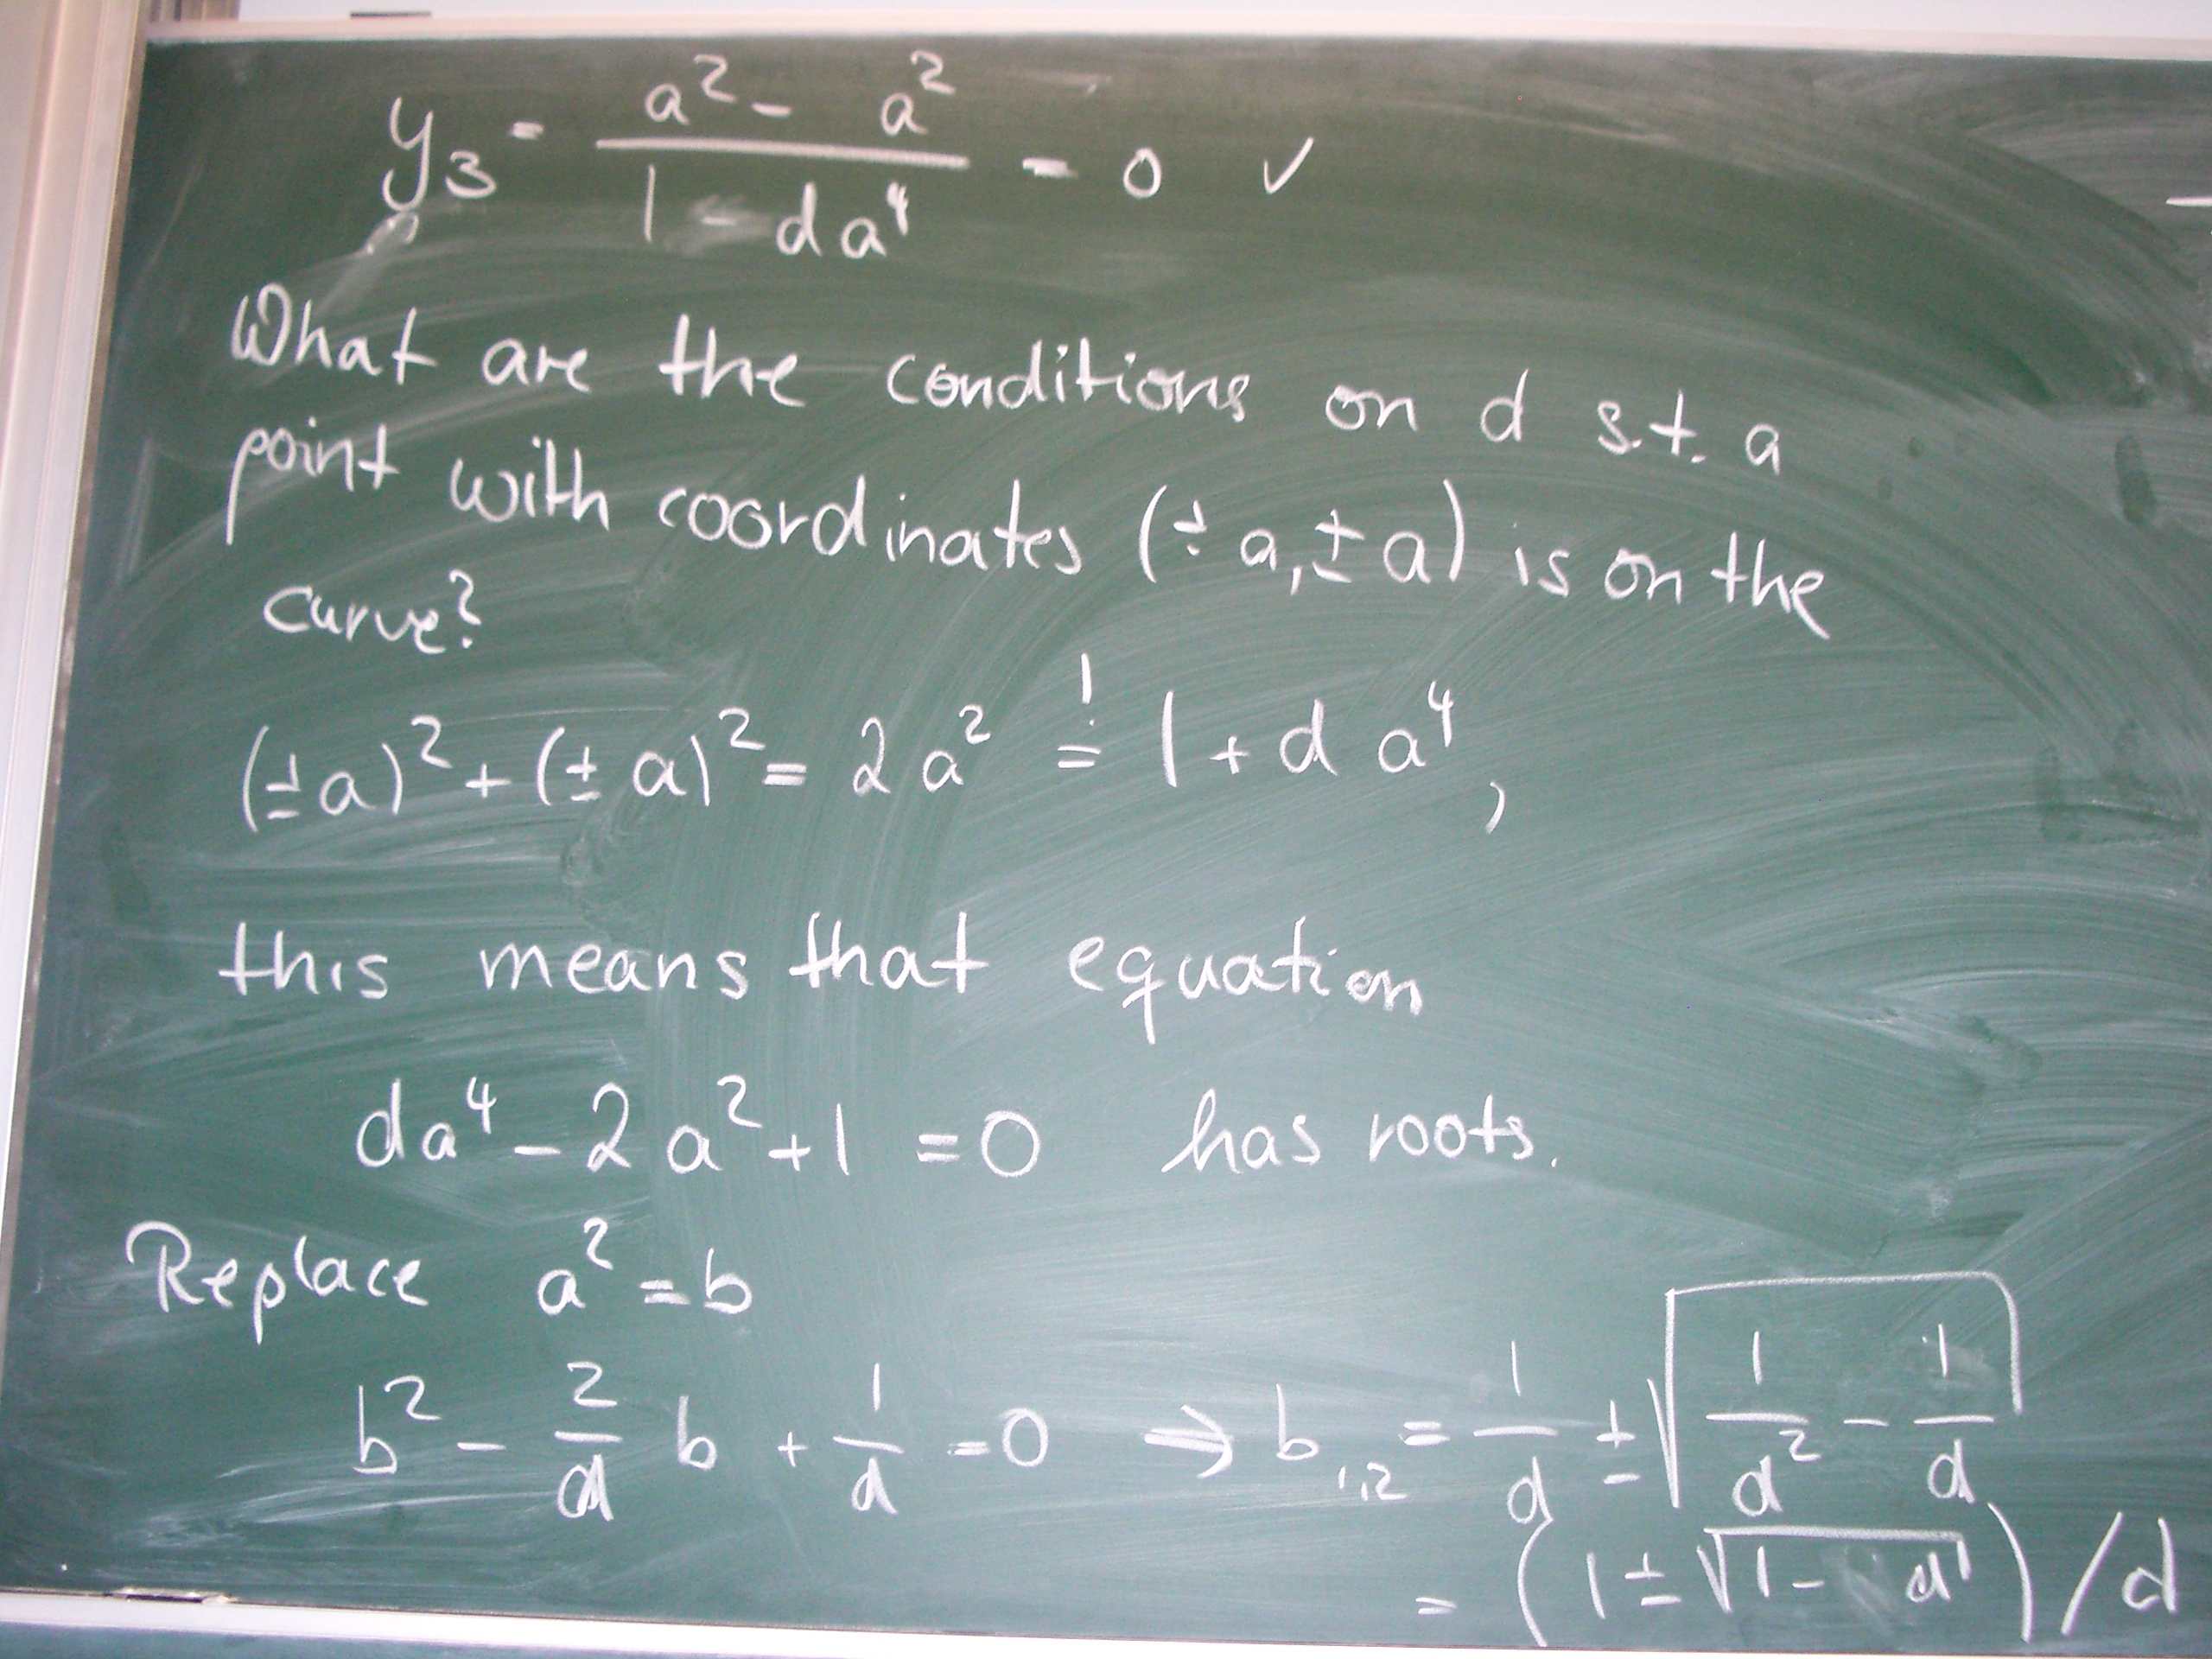 y₃ = (a² - a²) / (1 - da⁴) = 0 ✓
What are the conditions on d s.t. a
point with coordinates (± a, ± a) is on the
curve?
(± a)² + (± a)² = 2a² =! 1 + d a⁴,
this means that equation
da⁴ - 2a² + 1 = 0 has roots.
Replace a² = b
b² - 2/d b + 1/d = 0 ⇒ b₁,₂ = 1/d ± √(1/d² - 1/d)
= (1 ± √(1 - d))/d